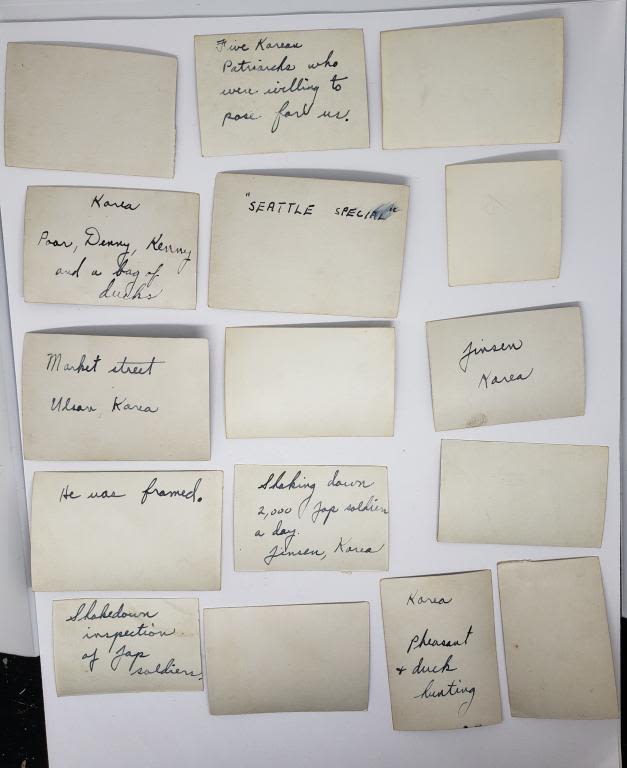 Five Korean
Patriarchs who
were willing to
pose for us.
Korea
Poar, Denny, Kenny
and a bag of
ducks
"SEATTLE SPECIAL"
Market street
Ulsan, Korea
Jinsen
Korea
He was framed.
Shaking down
2,000 Jap soldiers
a day.
Jinsen, Korea
Shakedown
inspection
of Jap
soldiers.
Korea
Pheasant
+ duck
hunting